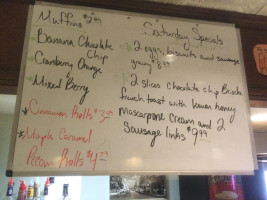 Muffins $2.99
Banana Chocolate
Chip
Cranberry Orange
Mixed Berry
Cinnamon Rolls $3.99
Maple Caramel
Pecan Rolls $4.79
Saturday Specials
2 eggs, biscuits and sausage
gravy $8.
2 slices chocolate chip Brioche
french toast with lemon honey
Mascarpone Cream and 2
Sausage links $9.99